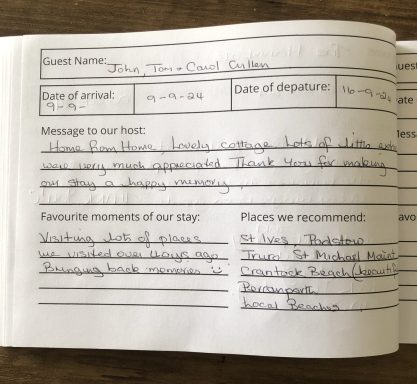 Guest Name: John, Tom + Carol Cullen
Date of arrival: 9-9-24
9-9-
Date of depature: 16-9-24
Message to our host:
Home from Home, Lovely cottage lots of little extra
were very much appreciated Thank you for making
our stay a happy memory.
Favourite moments of our stay:
Visiting lots of places
we visited over 40yrs ago
Bringing back memories
Places we recommend:
St Ives, Padstow
Truro St Michael Mount
Crantock Beach (beauti
Perranporth
Local Beaches